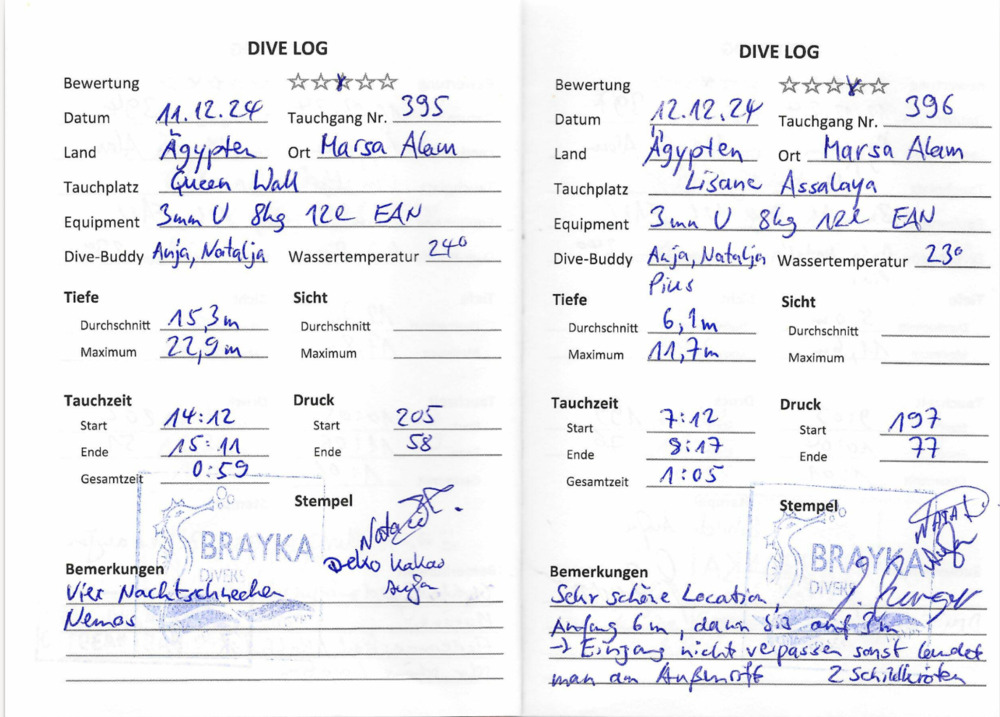 DIVE LOG
Bewertung ☆☆☆☆☆
Datum 11.12.24 Tauchgang Nr. 395
Land Ägypten Ort Marsa Alam
Tauchplatz Queen Wall
Equipment 3mm U 8kg 12l EAN
Dive-Buddy Anja, Natalja Wassertemperatur 24°
Tiefe Sicht
Durchschnitt 15,3m Durchschnitt
Maximum 22,9m Maximum
Tauchzeit Druck
Start 14:12 Start 205
Ende 15:11 Ende 58
Gesamtzeit 0:59
Stempel
BRAYKA
DIVERS
Deko Kakao
Anja
Bemerkungen
Vier Nachtschnecken
Nemos
DIVE LOG
Bewertung ☆☆☆☆☆
Datum 12.12.24 Tauchgang Nr. 396
Land Ägypten Ort Marsa Alam
Tauchplatz Lisane Assalaya
Equipment 3mm U 8kg 12l EAN
Dive-Buddy Anja, Natalja Wassertemperatur 23°
Pius
Tiefe Sicht
Durchschnitt 6,1m Durchschnitt
Maximum 11,7m Maximum
Tauchzeit Druck
Start 7:12 Start 197
Ende 8:17 Ende 77
Gesamtzeit 1:05
Stempel
BRAYKA
DIVERS
Bemerkungen
Sehr schöne Location,
Anfang 6m, dann bis auf 3m
→ Eingang nicht verpassen sonst landet
man am Außenriff 2 Schildkröten